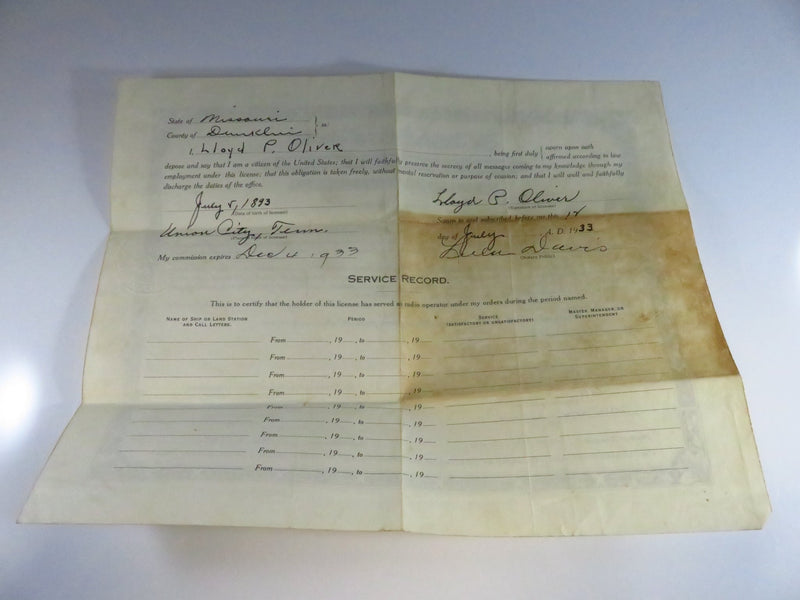 State of Missouri
County of Dunklin } ss:
I, Lloyd P. Oliver, being first duly { sworn upon oath
affirmed according to law
depose and say that I am a citizen of the United States; that I will faithfully preserve the secrecy of all messages coming to my knowledge through my
employment under this license; that this obligation is taken freely, without mental reservation or purpose of evasion; and that I will well and faithfully
discharge the duties of the office.
Lloyd P. Oliver
(Signature of licensee)
July 8, 1893
(Date of birth of licensee)
Sworn to and subscribed before me this 12
Union City, Tenn.
day of July A. D. 1933
My commission expires Dec 4 1933
Lula Davis
(Notary Public)
SERVICE RECORD.
This is to certify that the holder of this license has served as radio operator under my orders during the period named.
NAME OF SHIP OR LAND STATION AND CALL LETTERS. PERIOD SERVICE (SATISFACTORY OR UNSATISFACTORY) MASTER, MANAGER, OR SUPERINTENDENT.
From , 19 , to , 19
From , 19 , to , 19
From , 19 , to , 19
From , 19 , to , 19
From , 19 , to , 19
From , 19 , to , 19
From , 19 , to , 19
From , 19 , to , 19